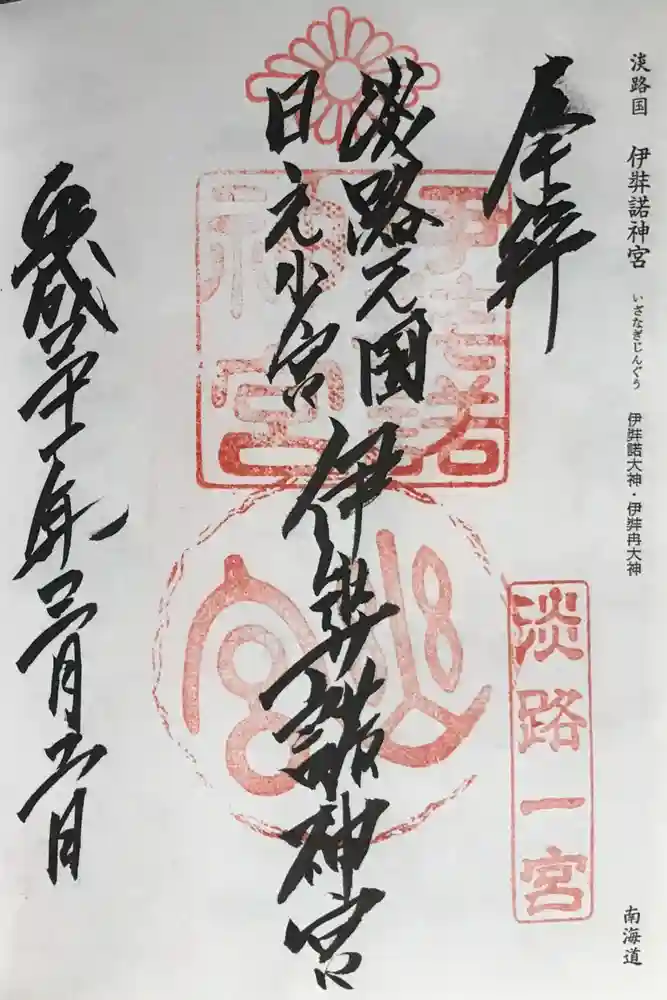 淡路国 伊弉諾神宮 いざなぎじんぐう 伊弉諾大神・伊弉冉大神
南海道
奉拝
淡路一宮
淡路之国
日之少宮
伊弉諾神宮
平成三十一年三月 日